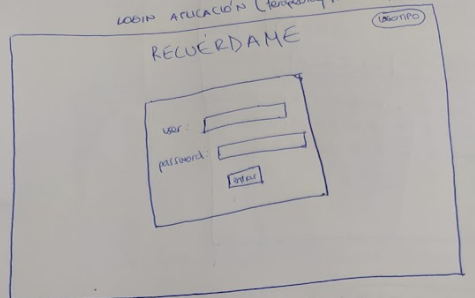 LOGIN APLICACIÓN (terapeuta
LOGOTIPO
RECUÉRDAME
user:
password:
entrar